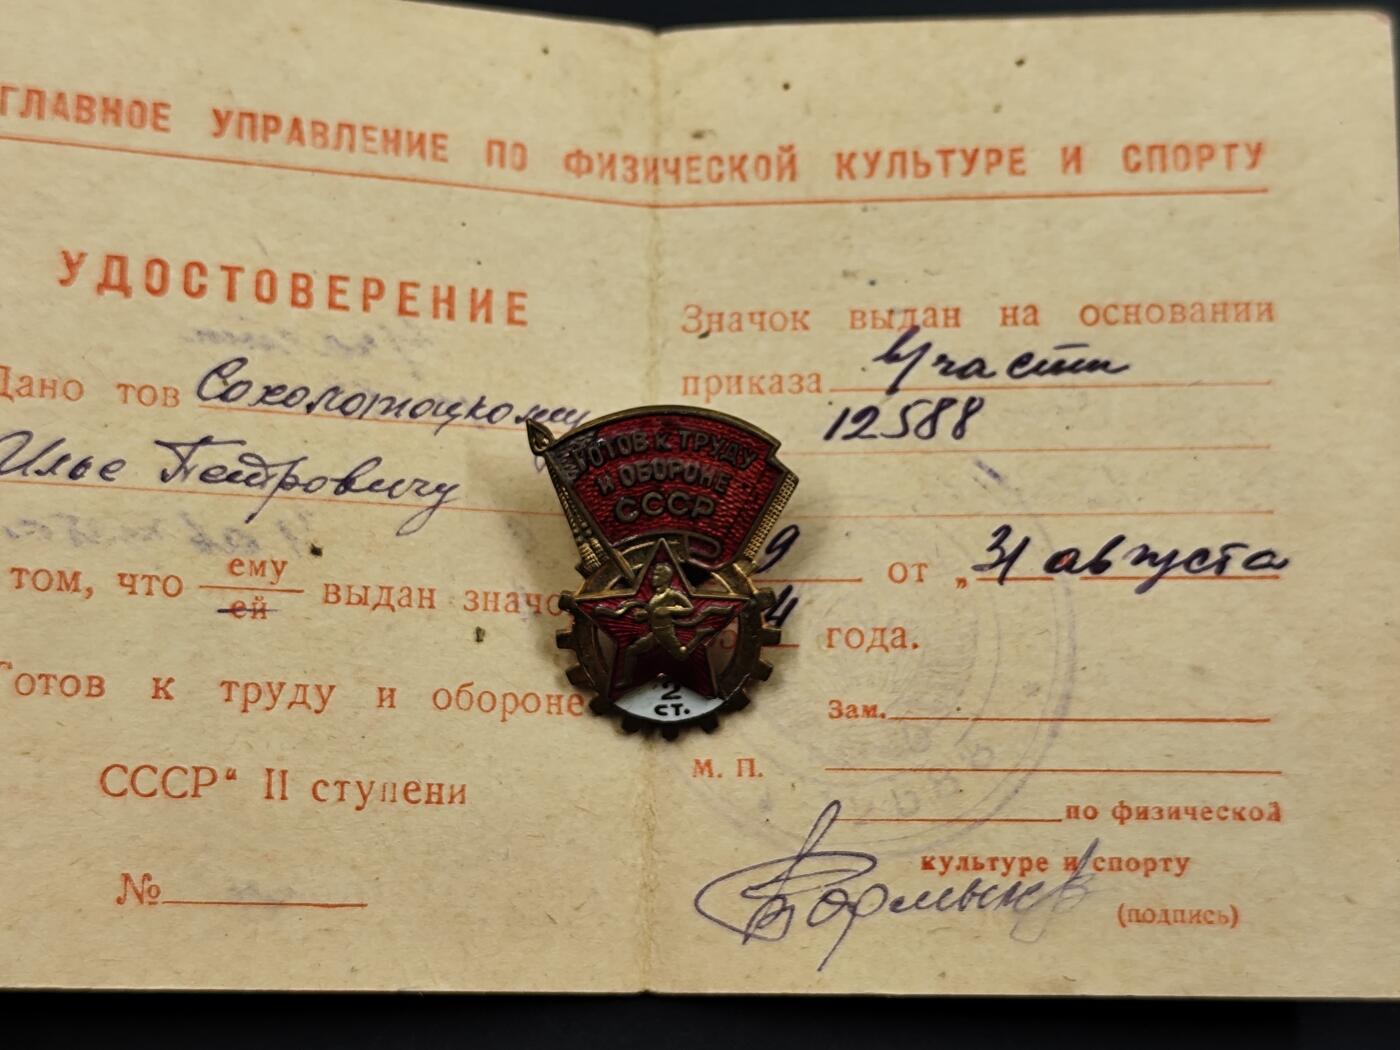 ГЛАВНОЕ УПРАВЛЕНИЕ ПО ФИЗИЧЕСКОЙ КУЛЬТУРЕ И СПОРТУ
УДОСТОВЕРЕНИЕ
Дано тов
Илье Петровичу
том, что ему
ей
выдан значо
Готов к труду и обороне
СССР“ II ступени
№
Значок выдан на основании
приказа в/части
12588
9 от „31 августа
4 года.
Зам.
М. П.
по физической
культуре и спорту
(подпись)
ГОТОВ К ТРУДУ
И ОБОРОНЕ
СССР
2
СТ.